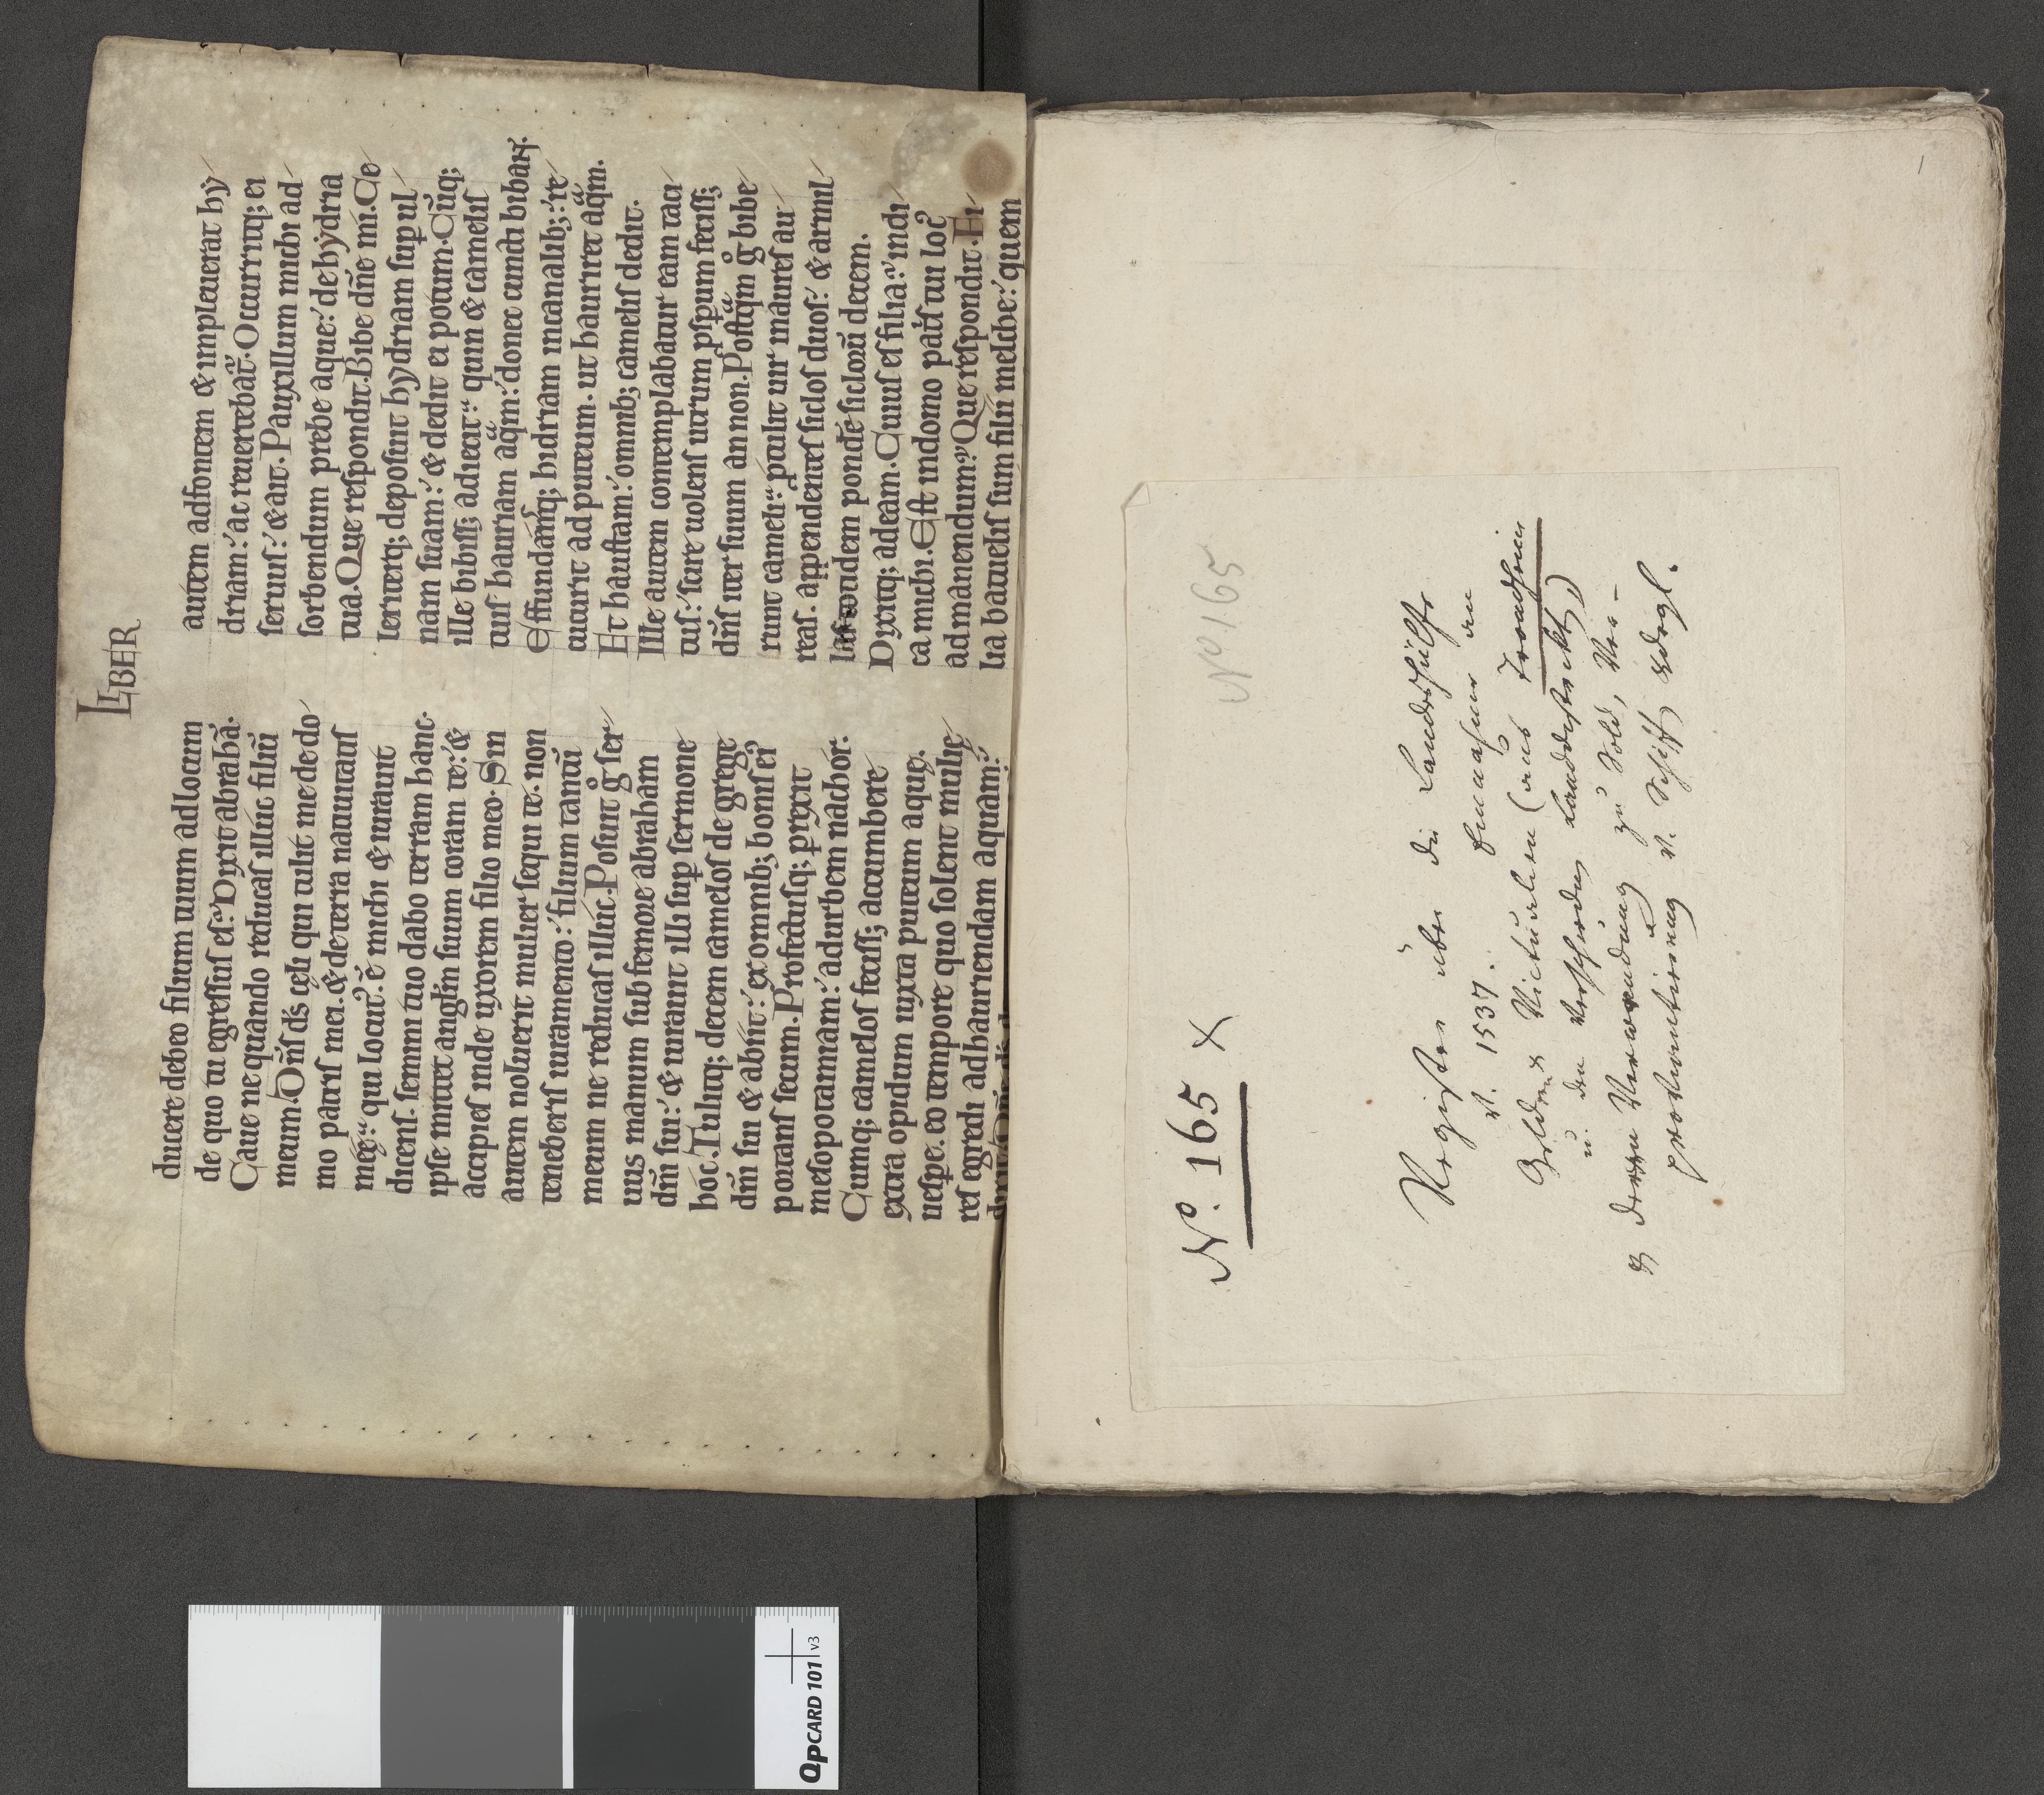 LIBER
ducere debeo filium tuum ad locum
de quo tu egressus es? Dixit abrahā.
Caue ne quando reducas illuc filiū
meum. Dn̄s ds̄ cęli qui tulit me de do
mo patris mei. & de terra natiuitatis
meę: qui locut᷒ ē michi & iurauit
dicens. semini tuo dabo terram hanc.
ipse mittet angl̄m suum coram te: &
accipies inde uxorem filio meo. Sin
autem noluerit mulier sequi te. non
teneberis iuramento: filium tantū
meum ne reducas illuc. Posuit gͦ ser
uus manum sub femore abraham
dn̄i sui: & iurauit illi sup̱ sermone
hoc. Tulitq; decem camelos de grege
dn̄i sui & abiit: ex omnib; bonis ei᷒
portans secum. Profectusq; p̱rexit
mesopotamiam: ad urbem nachor.
Cumq; camelos feciss; accumbere
extra opidum iuxta puteum aquę.
uesp̱e. eo tempore quo solent mulie
res egredi ad hauriendam aquam:
autem ad fontem & impleuerat hy
driam: ac reuertebat᷑. Occurritq; ei
seruus: & ait. Pauxillum michi ad
sorbendum prebe aque: de hydria
tua. Que respondit. Bibe dn̄e mi. Ce
leriterq; deposuit hydriam sup̱ ul
nam suam: & dedit ei potum. Cūq;
ille bibiss; adiecit: quin & camelis
tuis hauriam aqͣm: donec cuncti bibaɴᴛ.
Effundensq; hidriam in canalib;: re
cucurit ad puteum. ut hauriret aqͣm.
Et haustam: omnib; camelis dedit.
Ille autem contemplabatur eam taci
tus: scire uolens utrum psp̱um feciss;
dn̄s iter suum an non. Postqͣm gͦ bibe
runt cameli: ptulit uir inaures au
reas. appendentes siclos duos: & armil
las totidem pondē siclorū decem.
Dixitq; ad eam. Cuius es filia? indi
ca michi. Est in domo pat̄s tui loc᷒
ad manendum? Que respondit. Fi
lia batuelis sum filii melche: quem
Nº 165
Nº. 165 X
Register über die Landeshülfe
v. 1537. Einnahme an
Gelder & Victualien (aus Trondheim
u. den verschiednen Landdistrikten)
& deren Verwendung zu Sold, Ver-
proviantirung v. Schiff & dergl.
1
QPCARD 101 v3